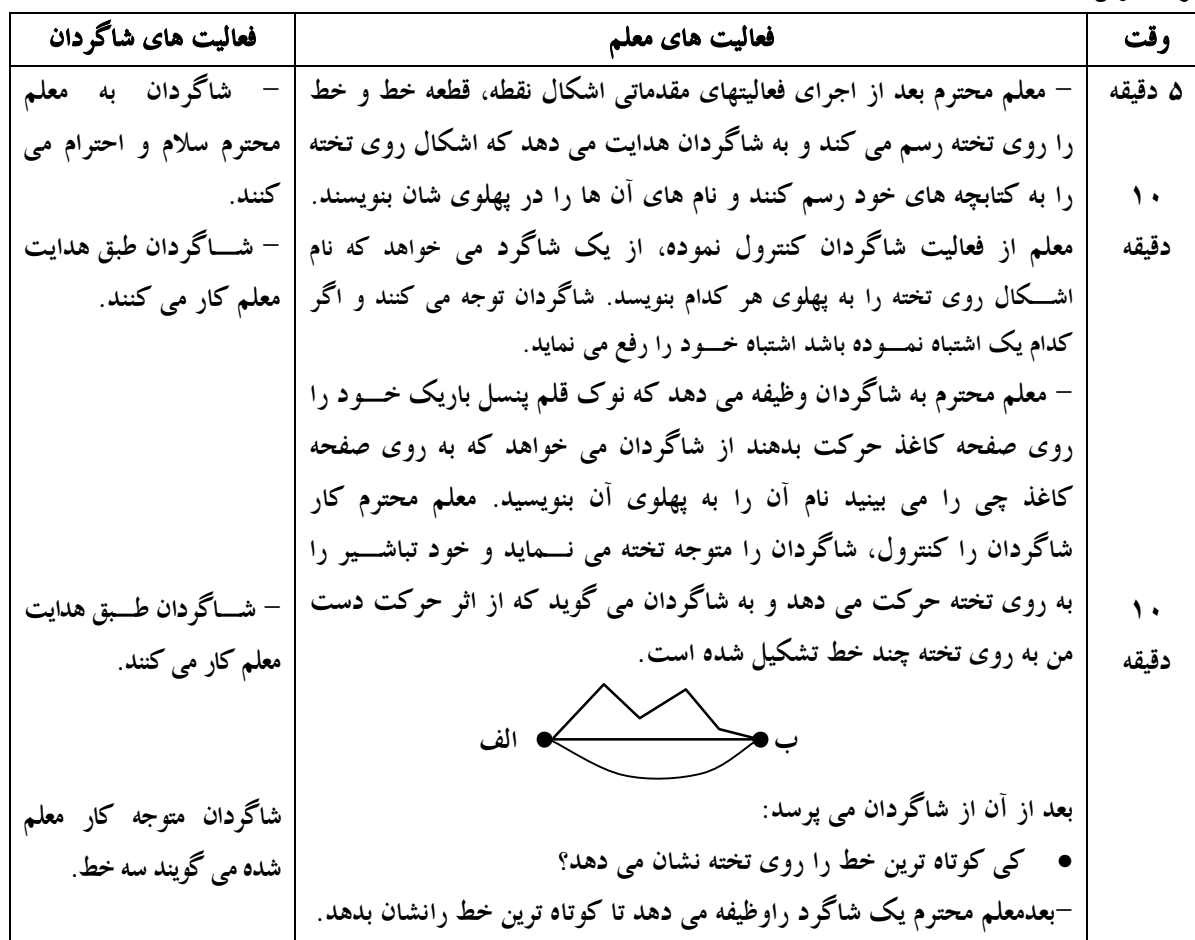 وقت
فعالیت های معلم
فعالیت های شاگردان
۵ دقیقه
۱۰
دقیقه
۱۰
دقیقه
– معلم محترم بعد از اجرای فعالیتهای مقدماتی اشکال نقطه، قطعه خط و خط
را روی تخته رسم می کند و به شاگردان هدایت می دهد که اشکال روی تخته
را به کتابچه های خود رسم کنند و نام های آن ها را در پهلوی شان بنویسند.
معلم از فعالیت شاگردان کنترول نموده، از یک شاگرد می خواهد که نام
اشـــکال روی تخته را به پهلوی هر کدام بنویسد. شاگردان توجه می کنند و اگر
کدام یک اشتباه نمـــوده باشد اشتباه خـــود را رفع می نماید.
– معلم محترم به شاگردان وظیفه می دهد که نوک قلم پنسل باریک خـــود را
روی صفحه کاغذ حرکت بدهند از شاگردان می خواهد که به روی صفحه
کاغذ چی را می بینید نام آن را به پهلوی آن بنویسید. معلم محترم کار
شاگردان را کنترول، شاگردان را متوجه تخته می نـــماید و خود تباشـــیر را
به روی تخته حرکت می دهد و به شاگردان می گوید که از اثر حرکت دست
من به روی تخته چند خط تشکیل شده است.
ب
الف
بعد از آن از شاگردان می پرسد:
● کی کوتاه ترین خط را روی تخته نشان می دهد؟
–بعدمعلم محترم یک شاگرد راوظیفه می دهد تا کوتاه ترین خط رانشان بدهد.
– شاگردان به معلم
محترم سلام و احترام می
کنند.
– شـــاگردان طبق هدایت
معلم کار می کنند.
– شـــاگردان طـــبق هدایت
معلم کار می کنند.
شاگردان متوجه کار معلم
شده می گویند سه خط.